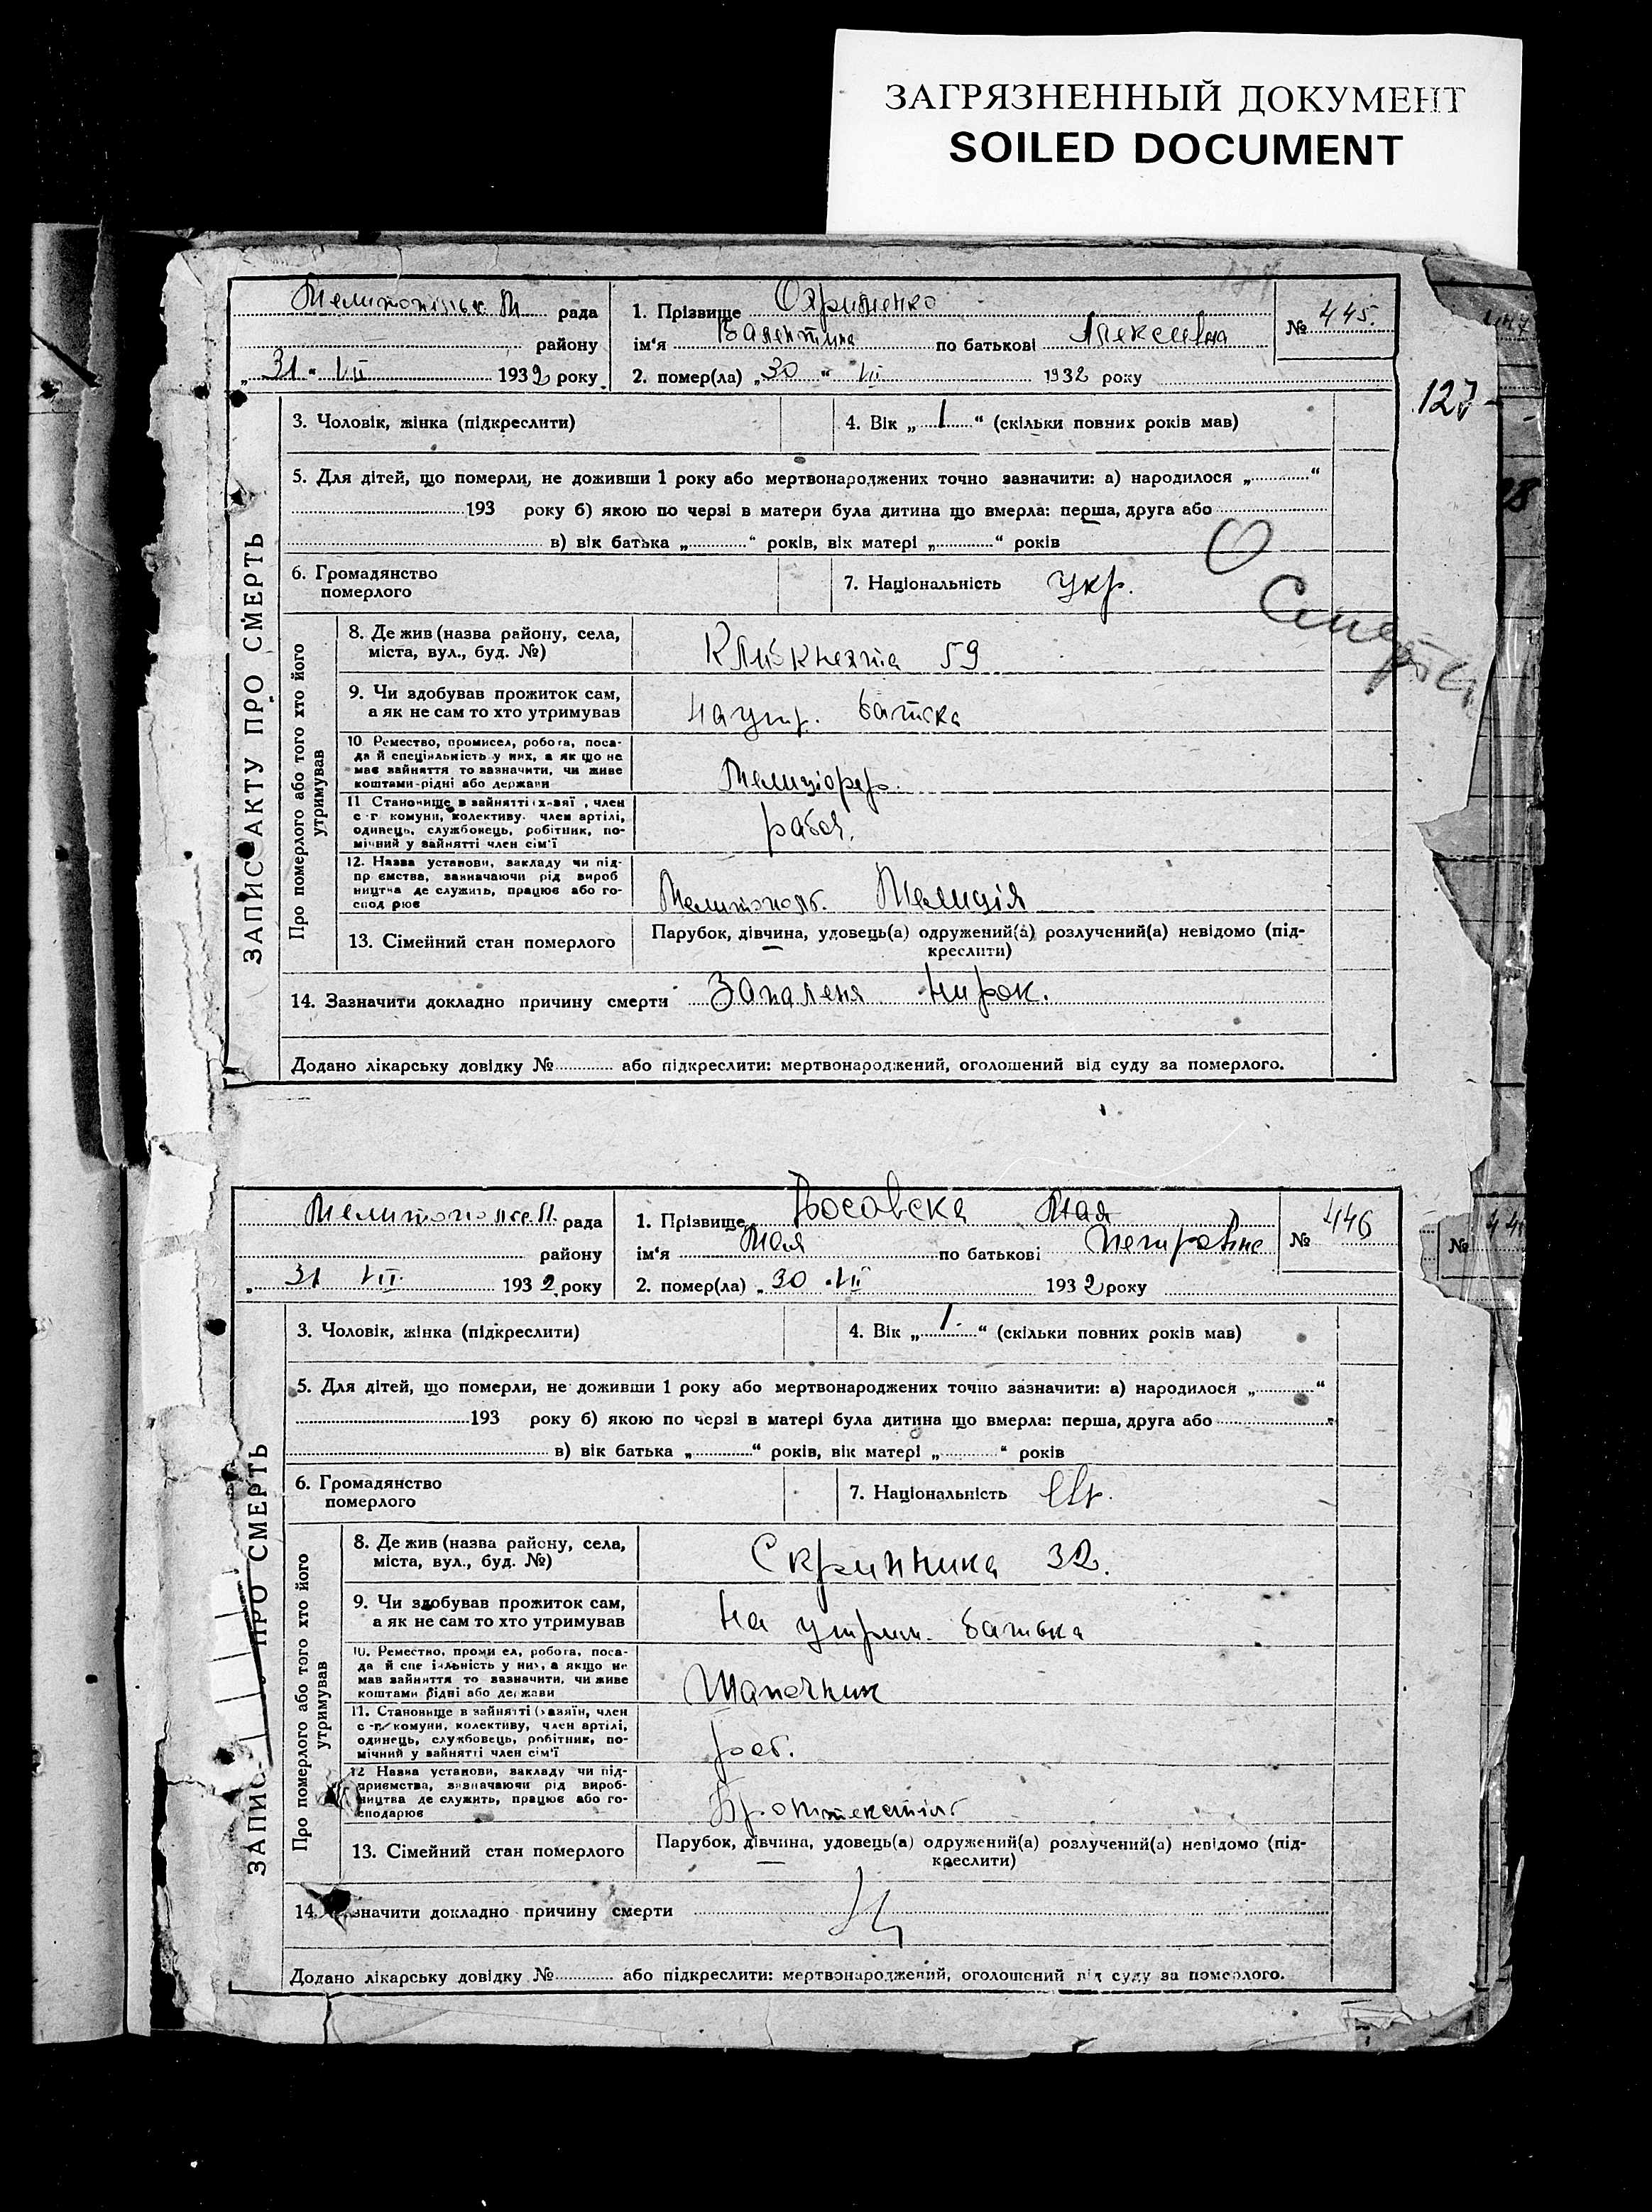 ЗАГРЯЗНЕННЫЙ ДОКУМЕНТ
SOILED DOCUMENT
рада
району
„ 31 “ VII 1932 року
1. Прізвище
ім‘я Валентина по батькові
2. помер(ла) „ 30 “ VII 1932 року
№ 445.
127
ЗАПИС АКТУ ПРО СМЕРТЬ
3. Чоловік, жінка (підкреслити)
4. Вік „ 1 “ (скільки повних років мав)
5. Для дітей, що померли, не доживши 1 року або мертвонароджених точно зазначити: а) народилося „ “
193 року б) якою по черзі в матери була дитина що вмерла: перша, друга або
в) вік батька „ “ років, вік матері „ “ років
6. Громадянство
померлого
7. Національність укр.
Про померлого або того хто його
утримував
8. Де жив (назва району, села,
міста, вул., буд. №)
59
9. Чи здобував прожиток сам,
а як не сам то хто утримував
на утр. батька
10 Ремество, промисел, робота, поса-
да й спеціяльність у них, а як що не
має зайняття то зазначити, чи живе
коштами-рідні або держави
11 Становище в зайнятті (х-зяї , член
с -г комуни, колективу, член артілі,
одинець, службовець, робітник, по-
мічний у зайнятті член сім'ї
12. Назва установи, закладу чи під-
пр ємства, зазначаючи рід вироб
ництва де служить, працює або го-
спод рює
Міліція
13. Сімейний стан померлого
Парубок, дівчина, удовець(а) одружений(а) розлучений(а) невідомо (під-
креслити)
14. Зазначити докладно причину смерти Запаленя нирок.
Додано лікарську довідку № або підкреслити: мертвонароджений, оголошений від суду за померлого.
рада
району
„ 31 VII 1932 року
1. Прізвище Мая
ім‘я Мая по батькові Петровне
2. помер(ла) „ 30 “ VII 1932 року
№ 446
№
ЗАПИС ПРО СМЕРТЬ
3. Чоловік, жінка (підкреслити)
4. Вік „ 1. “ (скільки повних років мав)
5. Для дітей, що померли, не доживши 1 року або мертвонароджених точно зазначити: а) народилося „ “
193 року б) якою по черзі в матері була дитина що вмерла: перша, друга або
в) вік батька „ “ років, вік матері „ “ років
6. Громадянство
померлого
7. Національність
Про померлого або того хто його
утримував
8. Де жив (назва району, села,
міста, вул., буд. №)
Скрипника 32.
9. Чи здобував прожиток сам,
а як не сам то хто утримував
на утрим. батька
10. Ремество, проми ел, робота, поса-
да й спе іяльність у них, а якщо не
мав зайняття то зазначити, чи живе
коштами рідні або держави
Шапочник
11. Становище в зайнятті (хазяїн, член
с -г. комуни, колективу, член артілі,
одинець, службовець, робітник, по-
мічний у зайнятті член сім'ї
роб.
12 Назва установи, закладу чи під-
приємства, зазначаючи рід вироб-
ництва де служить, працює або го-
сподарює
13. Сімейний стан померлого
Парубок, дівчина, удовець(а) одружений(а) розлучений(а) невідомо (під-
креслити)
14. значити докладно причину смерти
Додано лікарську довідку № або підкреслити: мертвонароджений, оголошений від суду за померлого.